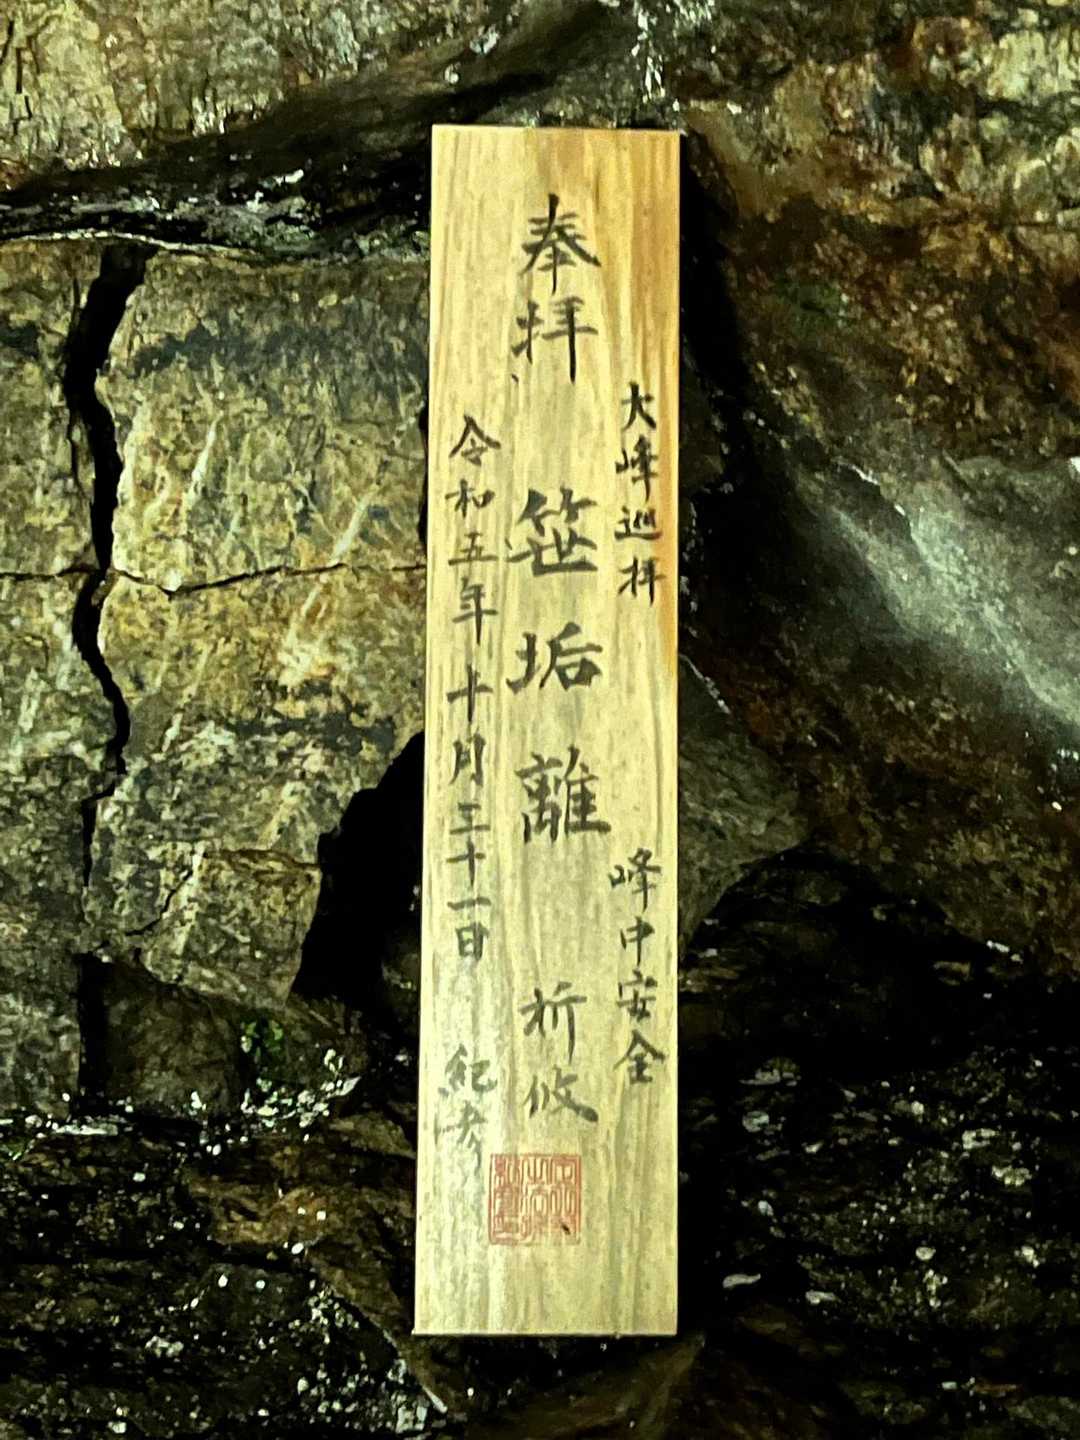 大峰巡拝 峰中安全
奉拝 笹垢離 祈攸
令和五年十月三十一日 紀